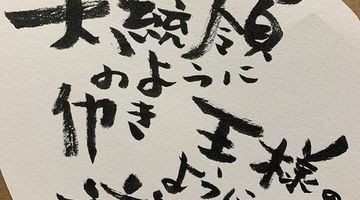 大統領
のように
仂き
王様の
ように